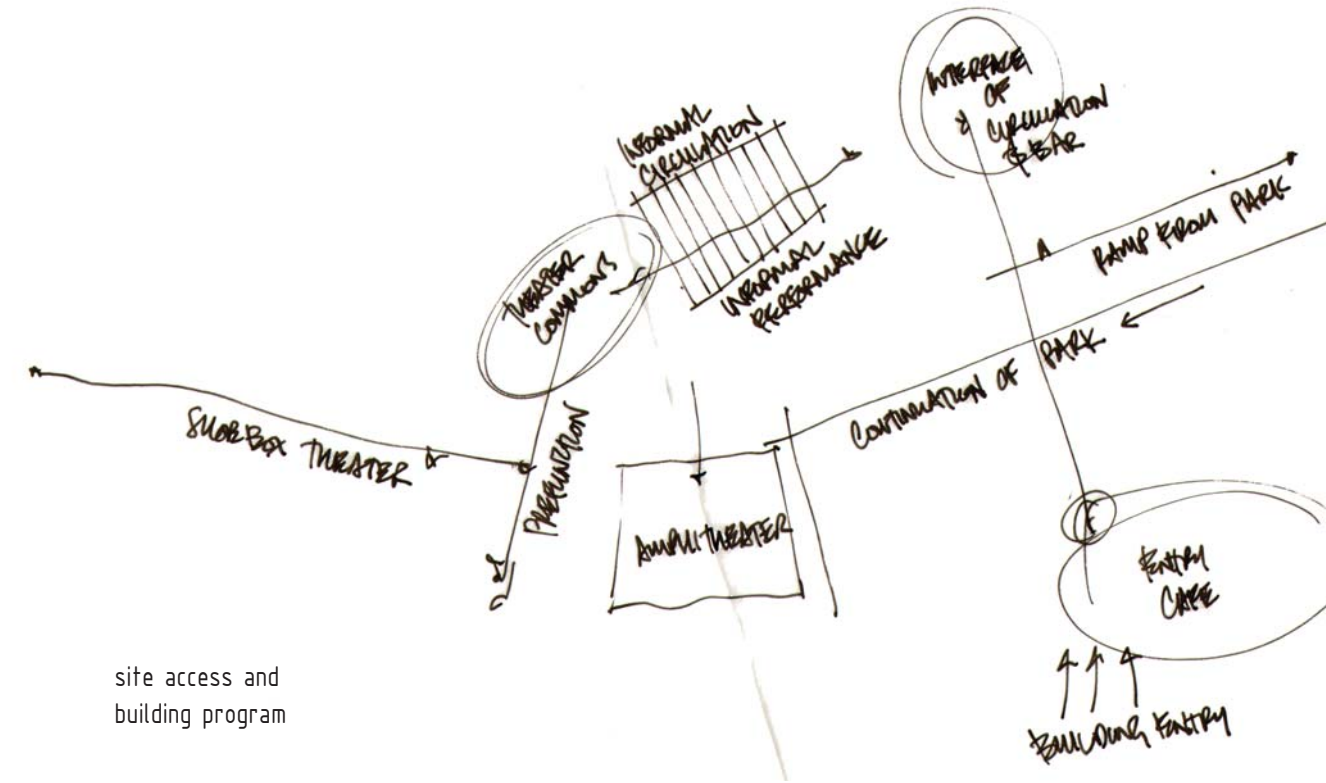 INTERFACE
OF
CIRCULATION
& BAR
INFORMAL
CIRCULATION
RAMP FROM PARK
THEATER
COMMONS
INFORMAL
PERFORMANCE
CONTINUATION OF PARK
SHOEBOX THEATER
PREFUNCTION
AMPHITHEATER
ENTRY
CAFE
BUILDING ENTRY
site access and
building program